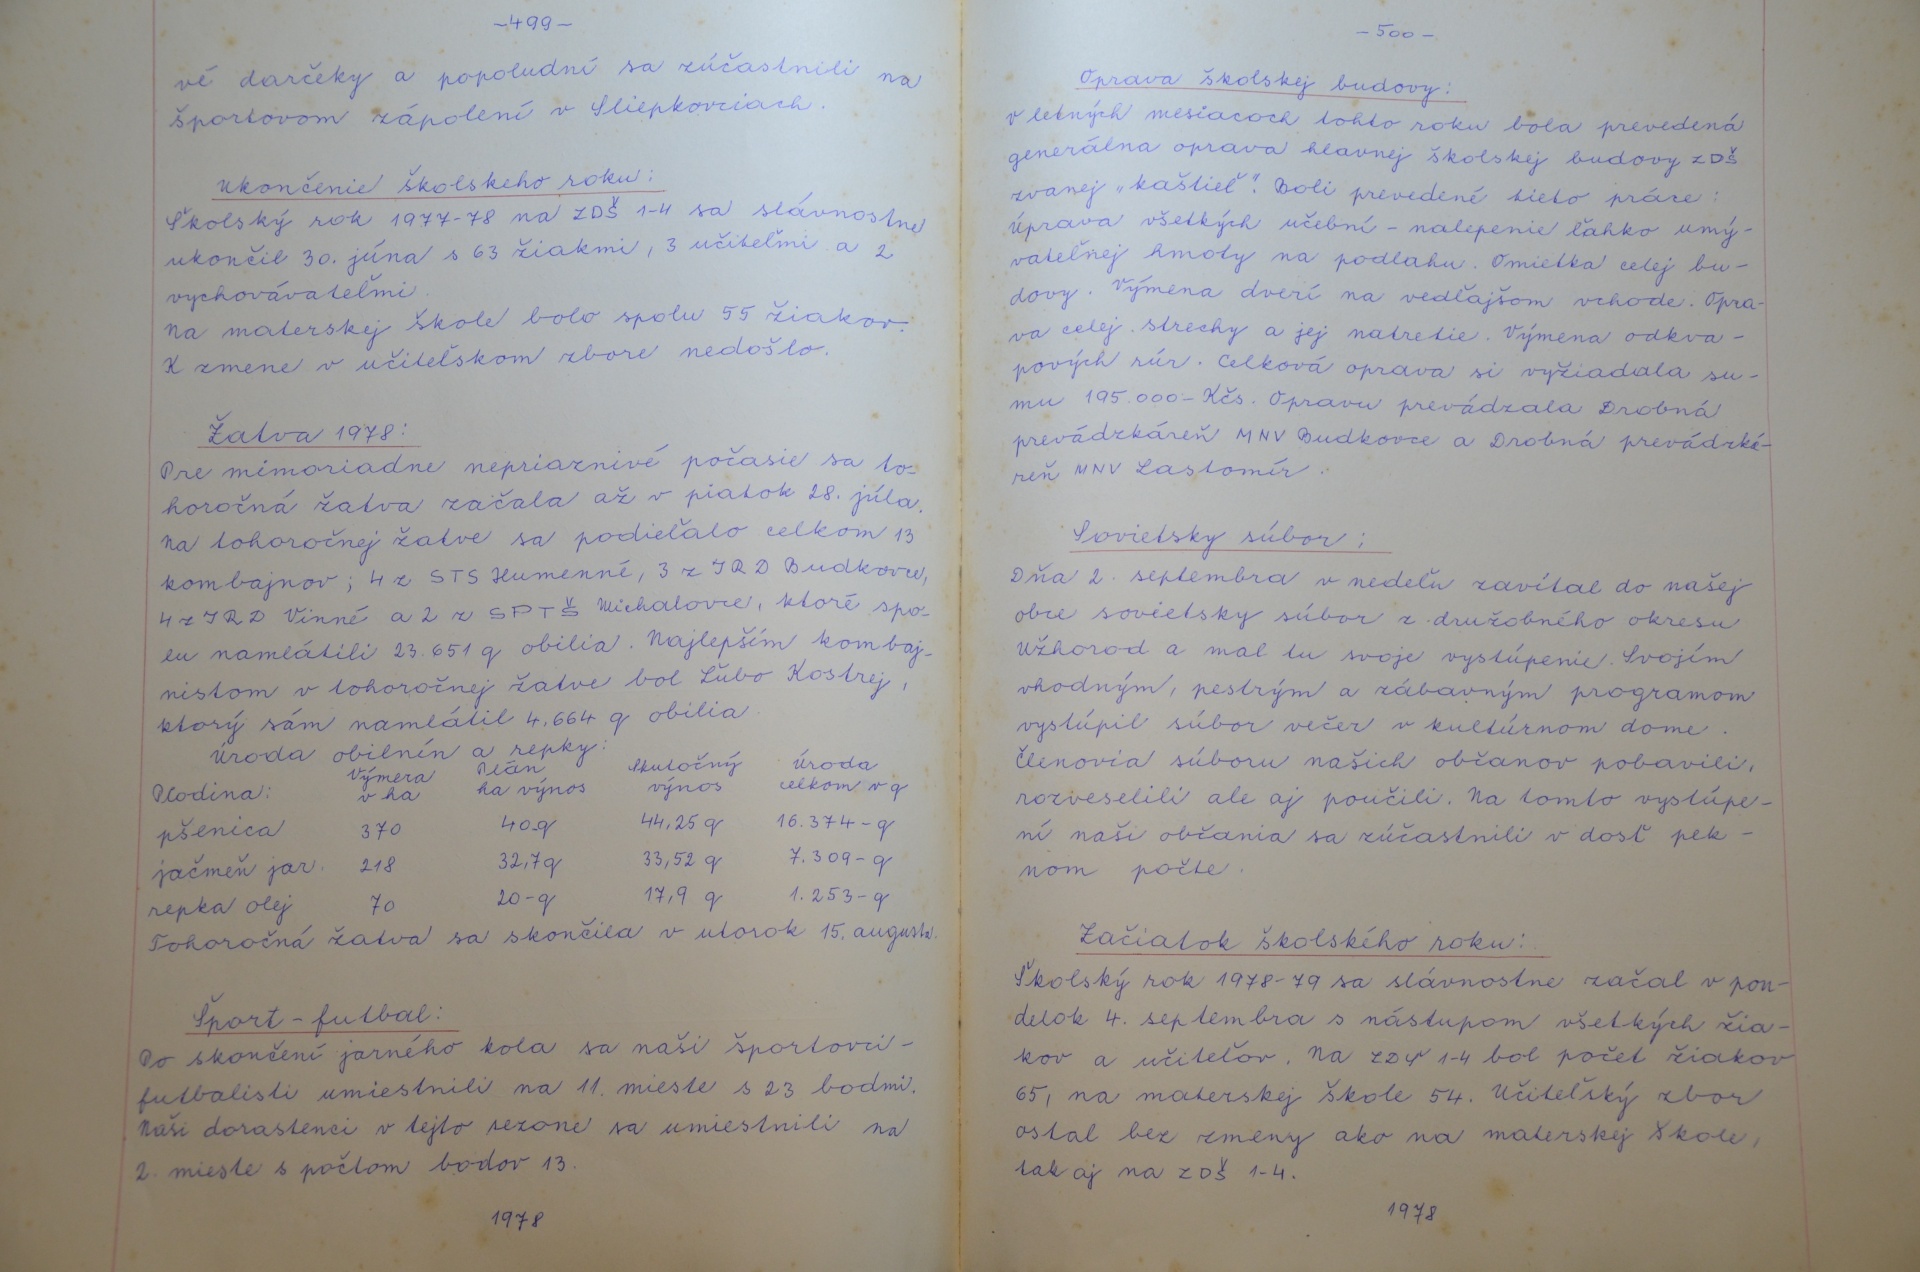 -499-
vé darčeky a popoludní sa zúčastnili na
športovom zápolení v Sliepkovciach.
Ukončenie školskeho roku:
Školský rok 1977-78 na ZDŠ 1-4 sa slávnostne
ukončil 30. júna s 63 žiakmi, 3 učiteľmi a 2
vychovávateľmi.
Na materskej škole bolo spolu 55 žiakov.
K zmene v učiteľskom zbore nedošlo.
Žatva 1978:
Pre mimoriadne nepriaznivé počasie sa to-
horočná žatva začala až v piatok 28. júla.
Na tohoročnej žatve sa podieľalo celkom 13
kombajnov; 4 z STS Humenné, 3 z JRD Budkovce,
4 z JRD Vinné a 2 z SPTŠ Michalovce, ktoré spo-
lu namlátili 23.651 q obilia. Najlepším kombaj-
nistom v tohoročnej žatve bol Ľubo Kostrej,
ktorý sám namlátil 4.664 q obilia
Úroda obilnín a repky:
Plodina: Výmera v ha Plán ha výnos Skutočný výnos Úroda celkom v q
pšenica 370 40q 44,25 q 16.374-q
jačmeň jar. 218 32,7q 33,52 q 7.309-q
repka olej 70 20-q 17,9 q 1.253-q
Tohoročná žatva sa skončila v utorok 15. augusta.
Šport-futbal:
Po skončení jarného kola sa naši športovci-
futbalisti umiestnili na 11. mieste s 23 bodmi.
Naši dorastenci v tejto sezone sa umiestnili na
2. mieste s počtom bodov 13.
1978
-500-
Oprava školskej budovy:
V letných mesiacoch tohto roku bola prevedená
generálna oprava hlavnej školskej budovy ZDŠ
zvanej „kaštieľ". Boli prevedené tieto práce:
Úprava všetkých učební - nalepenie ľahko umý-
vateľnej hmoty na podlahu. Omietka celej bu-
dovy. Výmena dverí na vedľajšom vchode. Opra-
va celej strechy a jej natretie. Výmena odkva-
pových rúr. Celková oprava si vyžiadala su-
mu 195.000- Kčs. Opravu prevádzala Drobná
prevádzkáreň MNV Budkovce a Drobná prevádzká-
reň MNV Lastomír.
Sovietsky súbor:
Dňa 2. septembra v nedeľu zavítal do našej
obce sovietsky súbor z družobného okresu
Užhorod a mal tu svoje vystúpenie. Svojím
vhodným, pestrým a zábavným programom
vystúpil súbor večer v kultúrnom dome.
Členovia súboru našich občanov pobavili,
rozveselili ale aj poučili. Na tomto vystúpe-
ní naši občania sa zúčastnili v dosť pek-
nom počte.
Začiatok školského roku:
Školský rok 1978-79 sa slávnostne začal v pon-
delok 4. septembra s nástupom všetkých žia-
kov a učiteľov. Na ZDŠ 1-4 bol počet žiakov
65, na materskej škole 54. Učiteľský zbor
ostal bez zmeny ako na materskej škole,
tak aj na ZDŠ 1-4.
1978